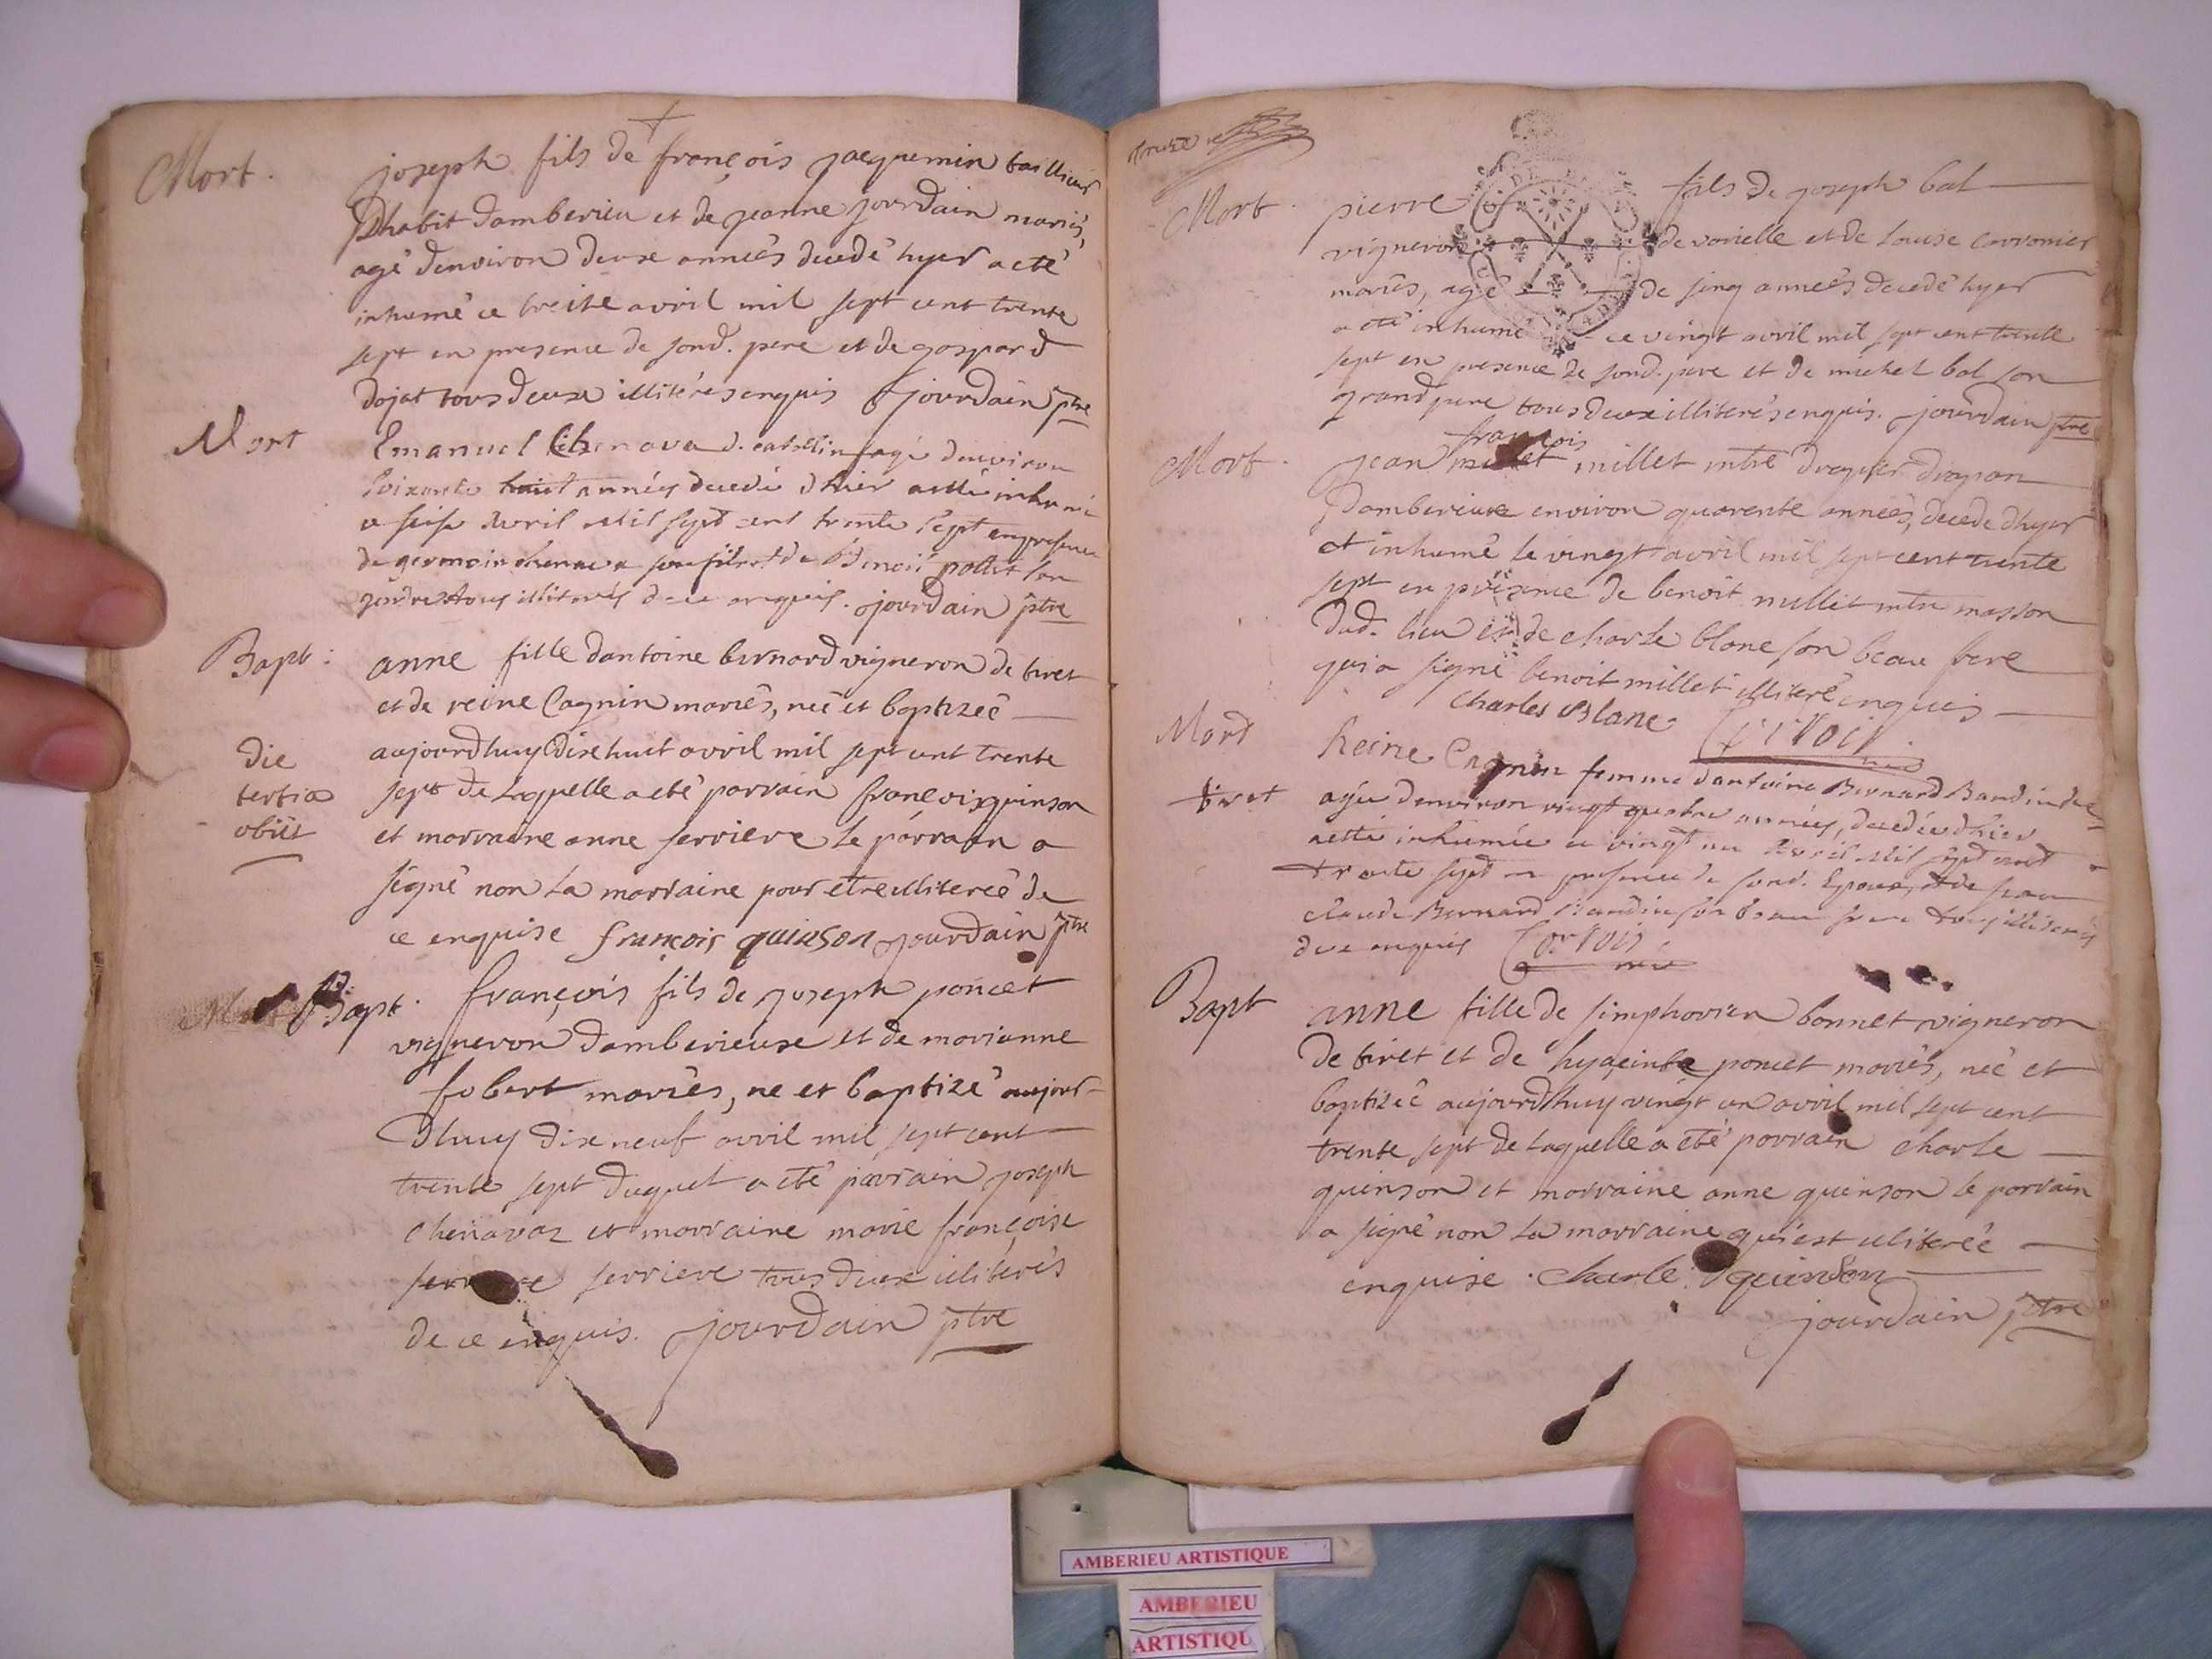 Mort.
joseph fils de françois jacquemin tailleur
Dhabit damberieu et de jeanne jourdain mariés,
agé denviron deux années decedé hyer a eté
inhumé ce treize avril mil sept cent trente
sept en presence de sond. pere et de gaspard
dojat tous deux illiterés enquis jourdain ptre
Mort
Emanuel Chenava d. agé denviron
Soixante huit années decedé dhier a esté inhumé
ce seise Avril Mil sept cent trente sept en presence
de germain chenava son fils et de Benoit pollet son
gendre tous illiterés de ce enquis. jourdain ptre
Bapt:
anne fille dantoine bernard vigneron de tiret
et de reine Cagnin mariés, neé et baptizeé
aujourdhuy dixhuit avril mil sept cent trente
sept de laquelle a eté parrain françois quinson
et marraine anne ferriere le parrain a
signé non la marraine pour etre illitereé de
ce enquise françois quinson jourdain ptre
die
tertia
obiit
Bapt.
françois fils de joseph poncet
vigneron damberieux et de marianne
fobert mariés, ne et baptizé aujour-
Dhuy dix neuf avril mil sept cent
trente sept duquel a eté parrain joseph
chenavaz et marraine marie françoise
ferriere tous deux illiterés
de ce enquis. jourdain ptre
Mort.
pierre fils de joseph bal
vigneron de vareille et de louise carronier
mariés, agé de sinq années decedé hyer
a eté inhumé ce vingt avril mil sept cent trente
sept en presence de sond. pere et de michel bal son
grand pere tous deux illiterés enquis. jourdain ptre
Mort.
françois
jean millet mtre drapier drapan
Damberieux environ quarente années, decede dhyer
et inhumé le vingt avril mil sept cent trente
sept en presence de benoit millet mtre masson
dud. lieu et de charle blanc son beau frere
qui a signé benoit millet illiteré enquis
Charles Blanc
Mort
tiret
Reine Cagnin femme dantoine Bernard Bandin
agée denviron vingt quatre années, decedée dhier
a esté inhumée ce vingt un Avril Mil sept cent
trente sept en presence de sond. Epoux, et de jean
claude Bernard Bandin son beau frere tous illiterés
de ce enquis
Bapt
anne fille de simphorien bonnet vigneron
de tiret et de hyacinte poncet mariés, neé et
baptizeé aujourdhuy vingt un avril mil sept cent
trente sept de laquelle a eté parrain charle
quinson et marraine anne quinson le parrain
a signé non la marraine qui est illitereé
enquise. Charle quinson
jourdain ptre
AMBERIEU ARTISTIQUE
AMBERIEU
ARTISTIQU